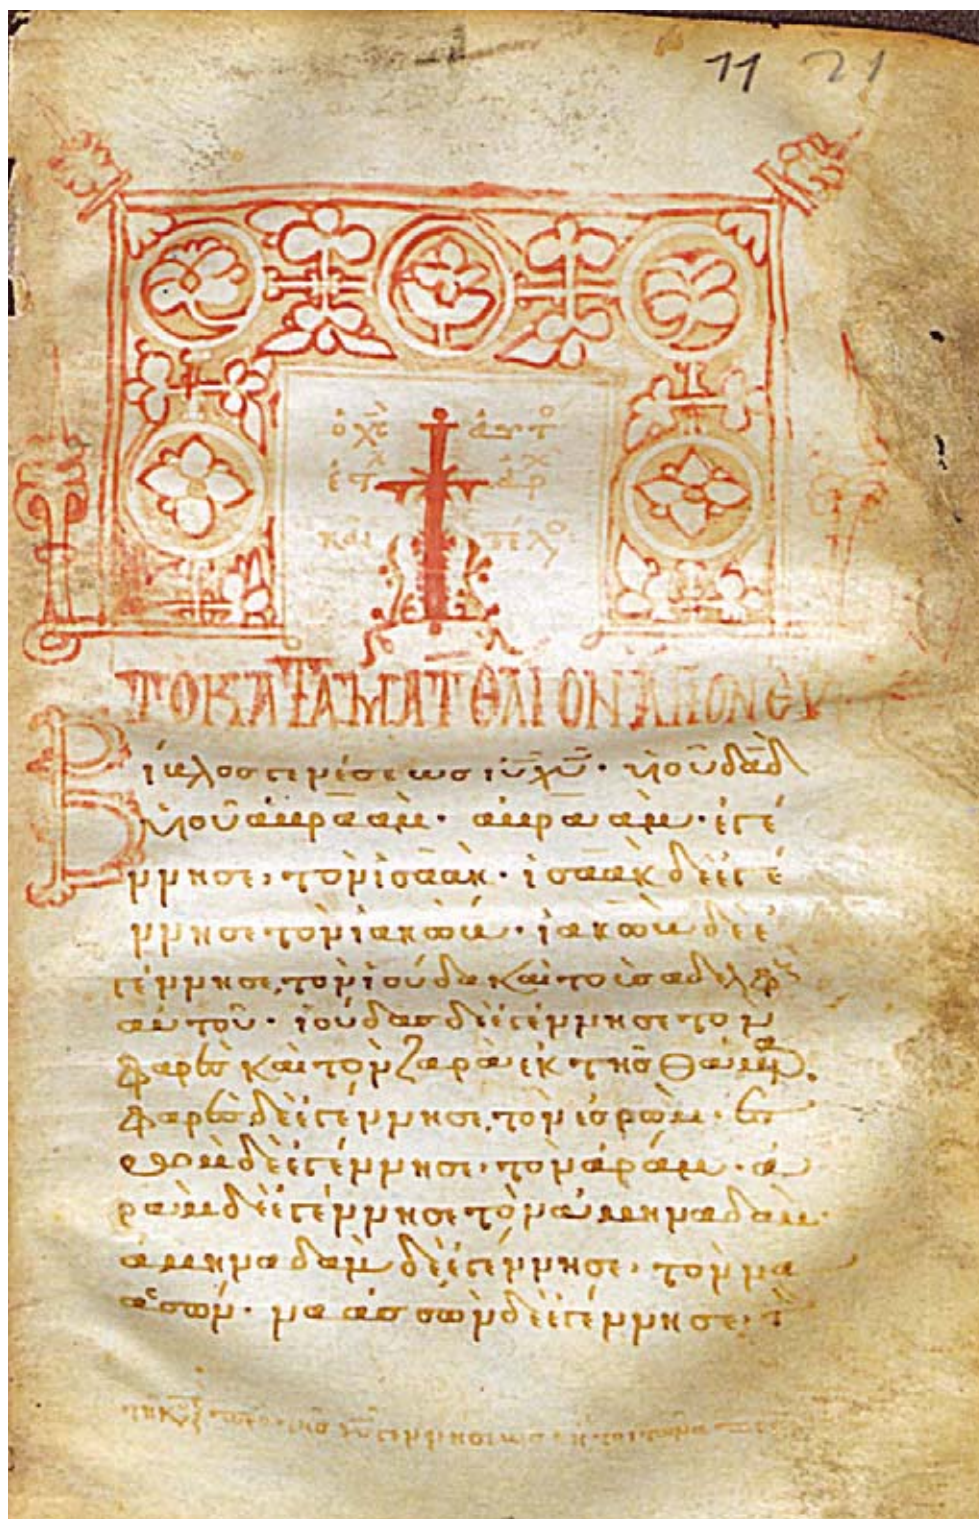 11 21
ὁ χς αυτ
ετ αρ
καὶ τέλ
ΤΟ ΚΑΤΑ ΜΑΤΘΑΙΟΝ ΑΓΙΟΝ ΕΥ
Βίβλος γενέσεως ιυ χυ· υἱοῦ δαδ
υἱοῦ ἀβραάμ· ἀβραὰμ· ἐγέ
ννησε, τὸν ἰσαάκ· ἰσαὰκ δὲ ἐγέ
ννησε τὸν ἰακώβ· ἰακὼβ δὲ ἐ
γέννησε, τὸν ἰούδα καὶ τοὺς ἀδελφ
αὐτοῦ· ἰούδας δὲ ἐγέννησε τὸν
φαρὲς καὶ τὸν ζαρὰ ἐκ τῆς θάμαρ.
φαρὲς δὲ ἐγέννησε, τὸν ἐσρώμ· ἐσ
ρὼμ δὲ ἐγέννησε, τὸν ἀράμ· ἀ
ρὰμ δὲ ἐγέννησε τὸν ἀμηναδὰμ·
ἀμηναδὰμ δὲ ἐγέννησε, τὸν να
ασσών· ναασσὼν δὲ ἐγέννησε, τὸ